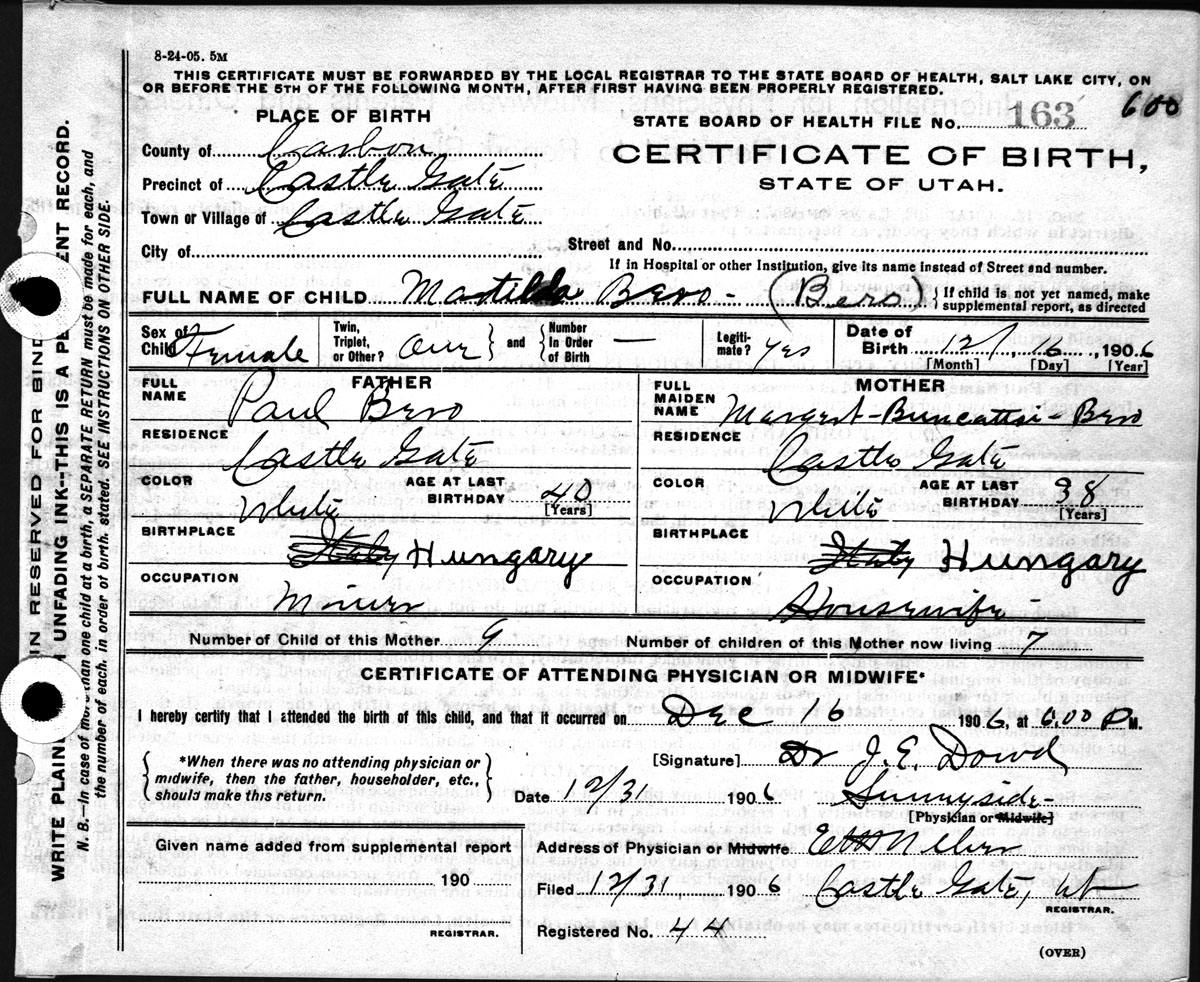 8-24-05. 5M
THIS CERTIFICATE MUST BE FORWARDED BY THE LOCAL REGISTRAR TO THE STATE BOARD OF HEALTH, SALT LAKE CITY, ON
OR BEFORE THE 5TH OF THE FOLLOWING MONTH, AFTER FIRST HAVING BEEN PROPERLY REGISTERED.
600
PLACE OF BIRTH
STATE BOARD OF HEALTH FILE NO. 163
County of Carbon
CERTIFICATE OF BIRTH,
Precinct of Castle Gate
STATE OF UTAH.
Town or Village of Castle Gate
City of
Street and No.
If in Hospital or other Institution, give its name instead of Street and number.
FULL NAME OF CHILD Matilda Bero - (Bero) { If child is not yet named, make
supplemental report, as directed
Sex of Child Female
Twin, Triplet, or Other? One } and { Number In Order of Birth —
Legiti- mate? yes
Date of Birth 12/, 16, 1906
[Month] [Day] [Year]
FATHER
FULL NAME Paul Bero
RESIDENCE
Castle Gate
COLOR White AGE AT LAST BIRTHDAY 40
[Years]
BIRTHPLACE
Italy Hungary
OCCUPATION
Miner
MOTHER
FULL MAIDEN NAME Margert - - Bero
RESIDENCE
Castle Gate
COLOR White AGE AT LAST BIRTHDAY 38
[Years]
BIRTHPLACE
Italy Hungary
OCCUPATION
Housewife
Number of Child of this Mother 9 Number of children of this Mother now living 7
CERTIFICATE OF ATTENDING PHYSICIAN OR MIDWIFE*
I hereby certify that I attended the birth of this child, and that it occurred on Dec 16 1906, at 6,00 P M.
{ *When there was no attending physician or
midwife, then the father, householder, etc.,
should make this return. }
[Signature] Dr J. E. Dowd
Date 12/31 1906 Sunnyside -
[Physician or Midwife]
Given name added from supplemental report
190
REGISTRAR.
Address of Physician or Midwife
Filed 12/31 1906 Castle Gate, Ut
REGISTRAR.
Registered No. 44
(OVER)
IN RESERVED FOR BIND
WRITE PLAIN H UNFADING INK--THIS IS A PE ENT RECORD.
N. B.—In case of more than one child at a birth, a SEPARATE RETURN must be made for each, and
the number of each, in order of birth, stated. SEE INSTRUCTIONS ON OTHER SIDE.